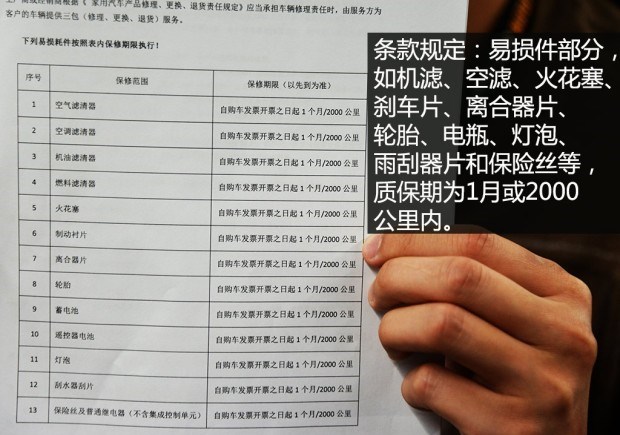 生产商或经销商根据《家用汽车产品修理、更换、退货责任规定》应当承担车辆修理责任时,由服务方为
客户的车辆提供三包(修理、更换、退货)服务。
下列易损耗件按照表内保修期限执行!
序号 保修范围 保修期限(以先到为准)
1 空气滤清器 自购车发票开票之日起 1 个月/2000 公里
2 空调滤清器 自购车发票开票之日起 1 个月/2000 公里
3 机油滤清器 自购车发票开票之日起 1 个月/2000 公里
4 燃料滤清器 自购车发票开票之日起 1 个月/2000 公里
5 火花塞 自购车发票开票之日起 1 个月/2000 公里
6 制动衬片 自购车发票开票之日起 1 个月/2000 公里
7 离合器片 自购车发票开票之日起 1 个月/2000 公里
8 轮胎 自购车发票开票之日起 1 个月/2000 公里
9 蓄电池 自购车发票开票之日起 1 个月/2000 公里
10 遥控器电池 自购车发票开票之日起 1 个月/2000 公里
11 灯泡 自购车发票开票之日起 1 个月/2000 公里
12 刮水器刮片 自购车发票开票之日起 1 个月/2000 公里
13 保险丝及普通继电器(不含集成控制单元) 自购车发票开票之日起 1 个月/2000 公里
条款规定:易损件部分,
如机滤、空滤、火花塞、
刹车片、离合器片、
轮胎、电瓶、灯泡、
雨刮器片和保险丝等,
质保期为1月或2000
公里内。